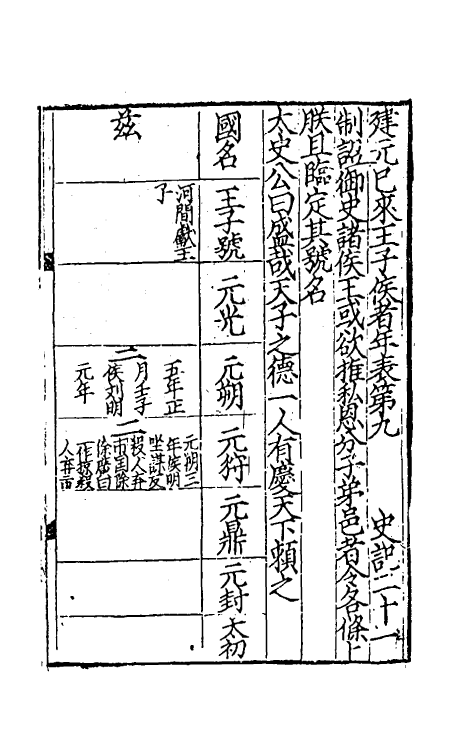 建元已來王子侯者年表第九　史記二十一
制詔御史諸侯王或欲推私恩分子弟邑者令各條上
朕且臨定其號名
太史公曰盛哉天子之德一人有慶天下賴之
國名
王子號
元光
元朔
元狩
元鼎
元封
太初
茲
河間獻王
子
二
五年正
月壬子
侯劉明
元年
二
元朔三
年侯明
坐謀反
殺人弃
市國除
徐廣曰
一作掠殺
人弃市